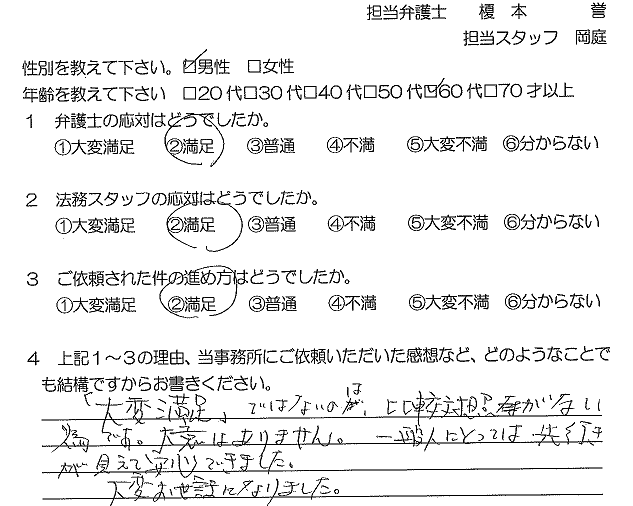 担当弁護士　榎　本　　　誉
担当スタッフ　岡庭
性別を教えて下さい。☑男性　□女性
年齢を教えて下さい　□20代□30代□40代□50代☑60代□70才以上
1　弁護士の応対はどうでしたか。
①大変満足　②満足　③普通　④不満　⑤大変不満　⑥分からない
2　法務スタッフの応対はどうでしたか。
①大変満足　②満足　③普通　④不満　⑤大変不満　⑥分からない
3　ご依頼された件の進め方はどうでしたか。
①大変満足　②満足　③普通　④不満　⑤大変不満　⑥分からない
4　上記1～3の理由、当事務所にご依頼いただいた感想など、どのようなことで
も結構ですからお書きください。
「大変満足」ではないのは、比較対照がない
為です。他意はありません。一般人にとっては先行き
が見えて安心できました。
大変お世話になりました。